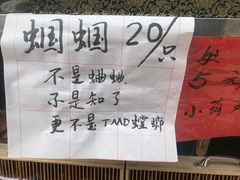 蝈蝈 20/只
不是蛐蛐
不是知了
更不是TMD螳螂
5
小